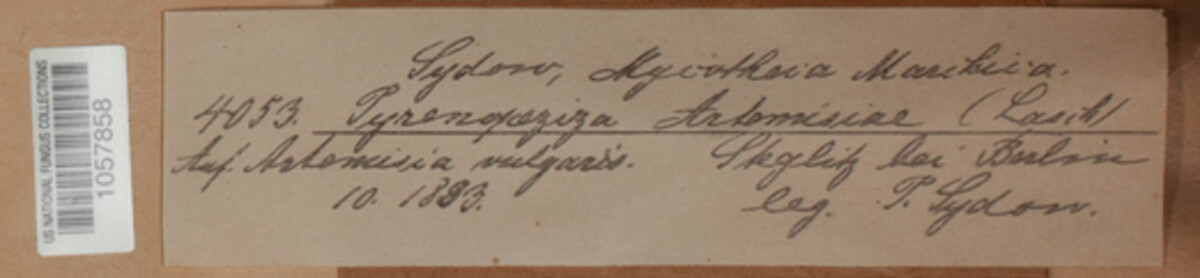 US NATIONAL FUNGUS COLLECTIONS
1057858
Sydow, Mycotheca Marchica.
4053. Pyrenopeziza Artemisiae (Lasch)
Auf. Artemisia vulgaris. Steglitz bei Berlin
10. 1893. leg. P. Sydow.